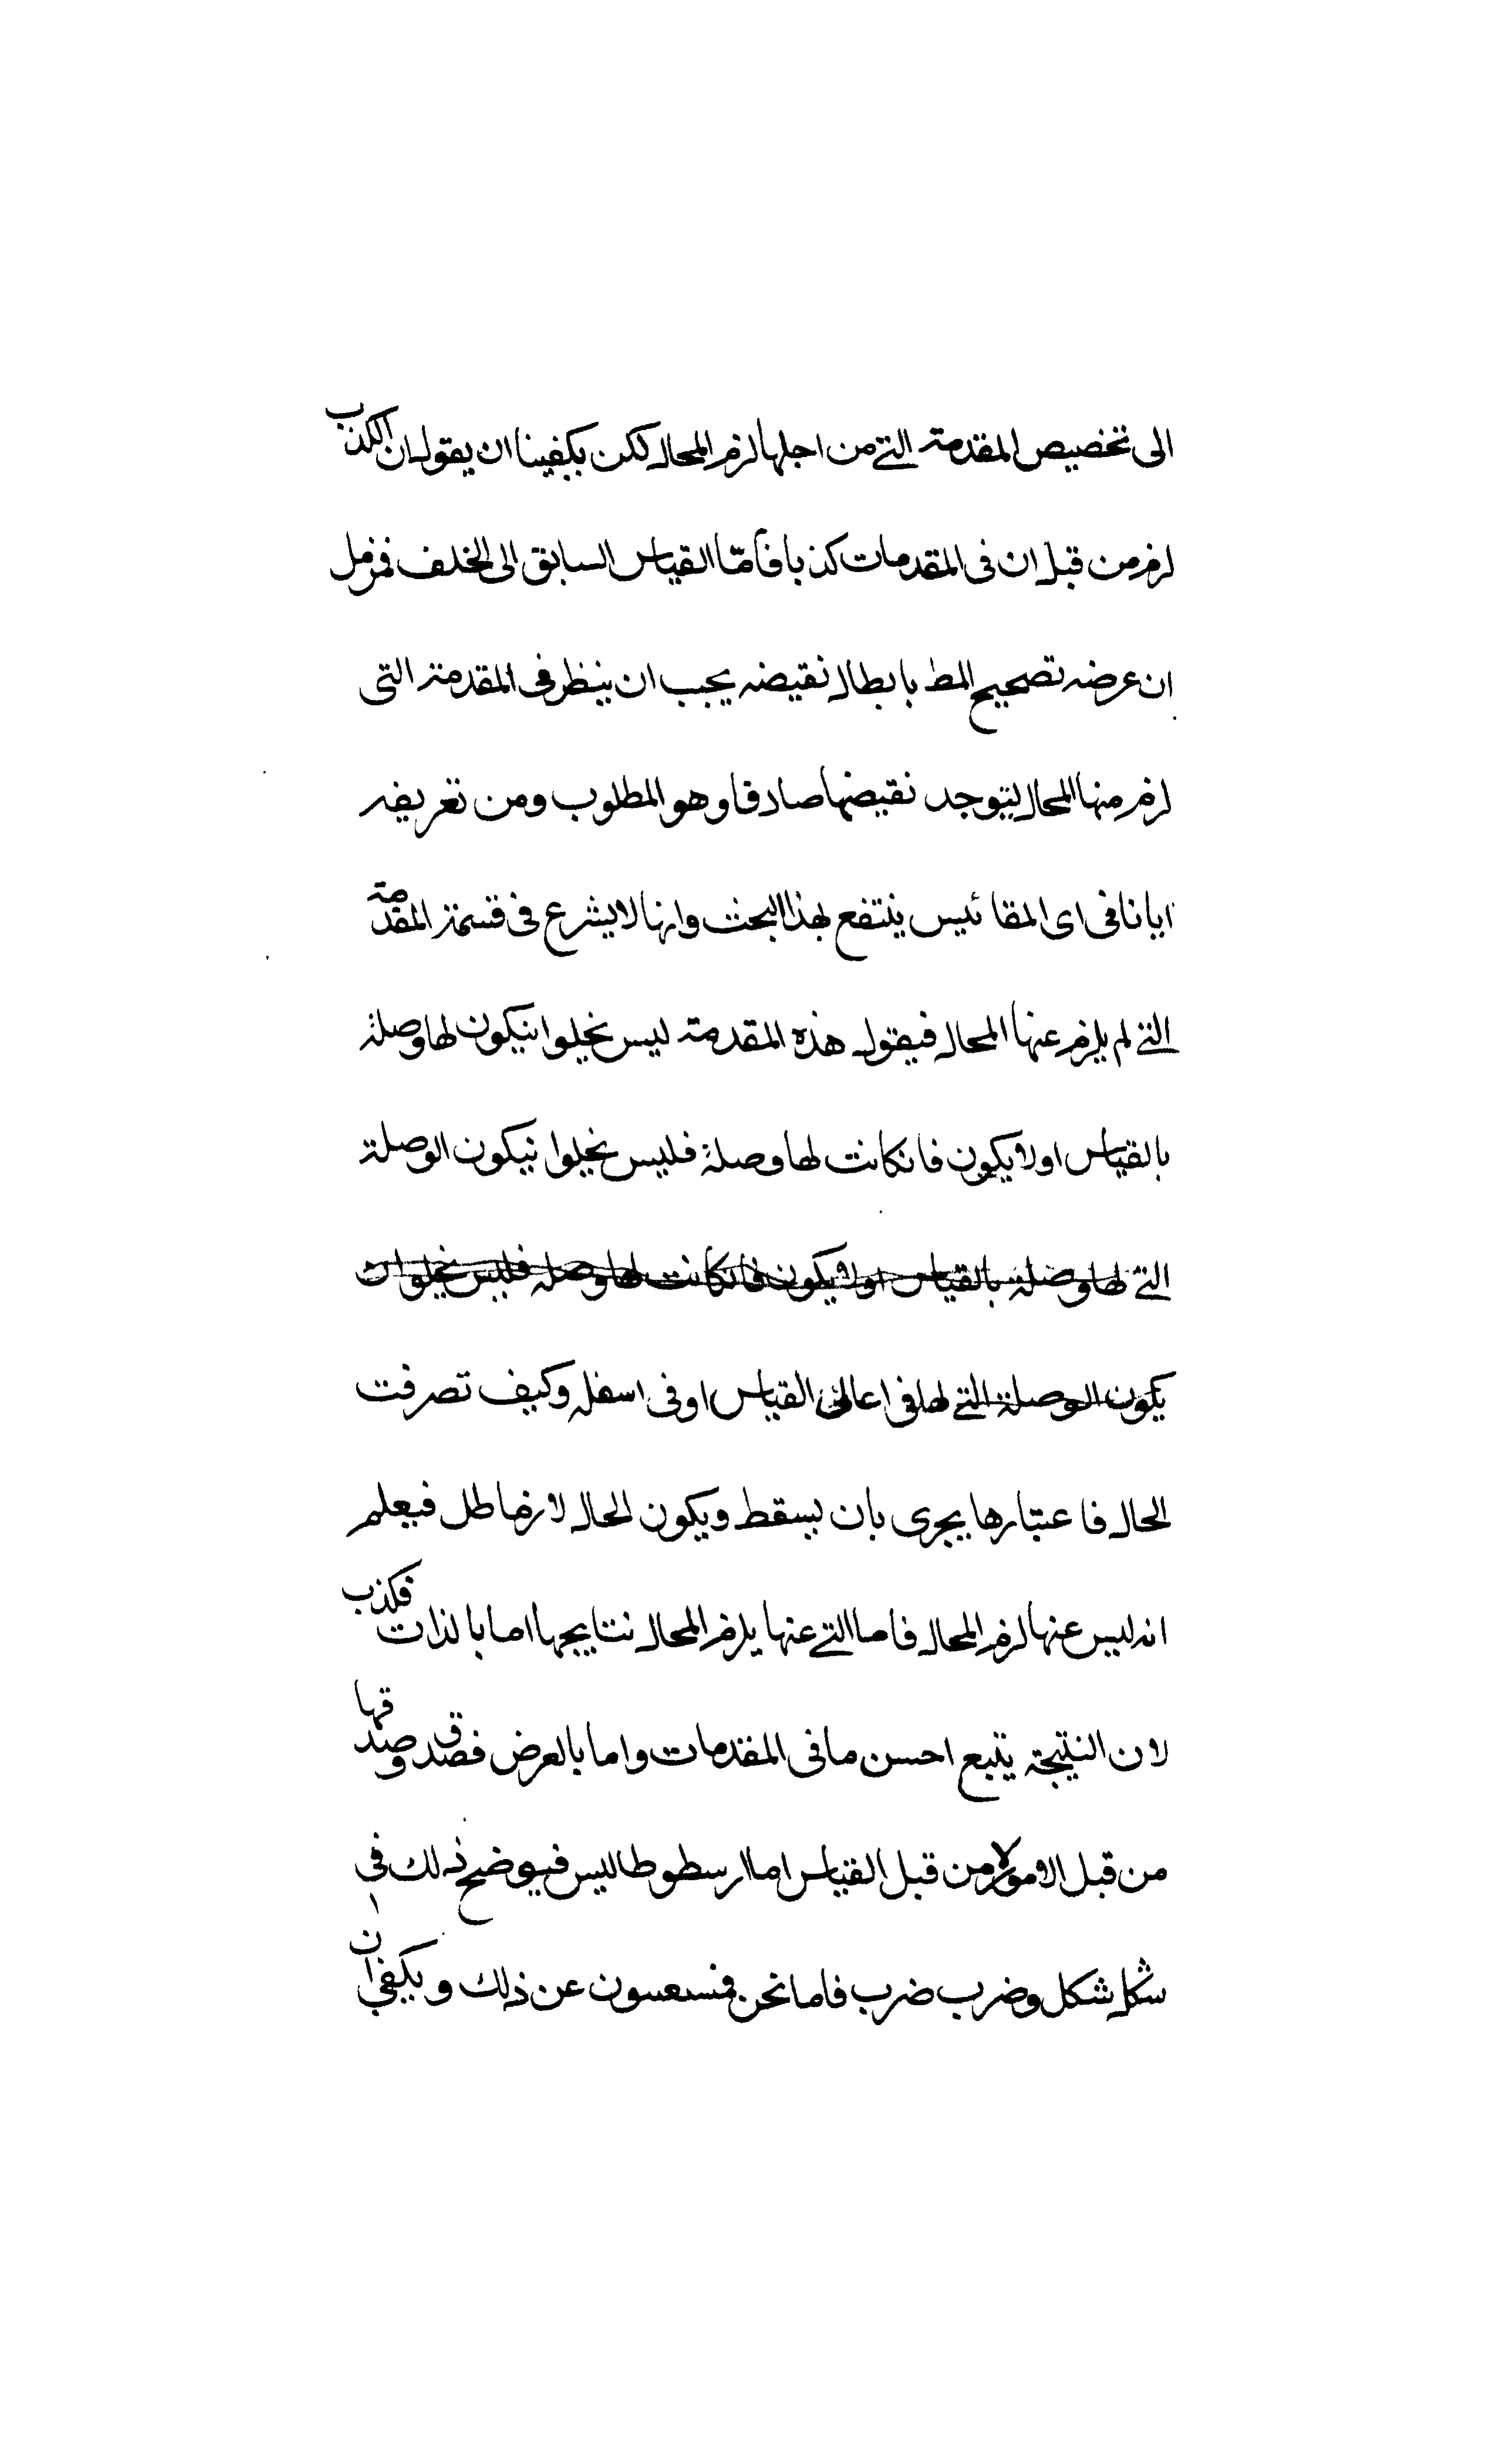 الى تخصيص المقدمة التي من اجلها لزم المحال لكن يكفينا ان يقول ان الكذب
لزم من قبل ان في المقدمات كذبا فأمّا القياس السابق الى الخلف فمن مل
ان عرضه تصحيح المط بابطال نقيضه يجب ان ينظر في المقدمة التي
لزم منها المحال ليتوجد نقيضها صادقا وهو المطلوب ومن تعريفه
ايانا في اى المقائيس ينتفع بهذا البحث وانها لا يشرع في قسمة المقدمة
التي لم يلزم عنها المحال فيقول هذه المقدمة ليس نخيلوا نيكون لها وصلة
بالقياس اولا يكون فانكانت لها وصلة فليس نخيلوا نيكون الوصلة
التي لها وصلة بالقياس اولا يكون فانكانت لها وصلة فليس نخيلو ان
يكون الوصلة التي لها في اعالى القياس او في اسفله وكيف تصرفت
الحال فاعتبارها يجرى بان يسقط ويكون الحال لازما طل فيعلم
انه ليس عنها لزم المحال فاما التي عنها يلزم المحال نتايجها اما بالذات فكذب
لان النتيجة يتبع احسن ما في المقدمات واما بالعرض فصدق وصدقها
من قبل الامور لا من قبل القياس اما ارسطوطاليس فيوضح ذلك في
شكل شكل وضرب ضرب فاما نحن عن ذلك ويكفي ان